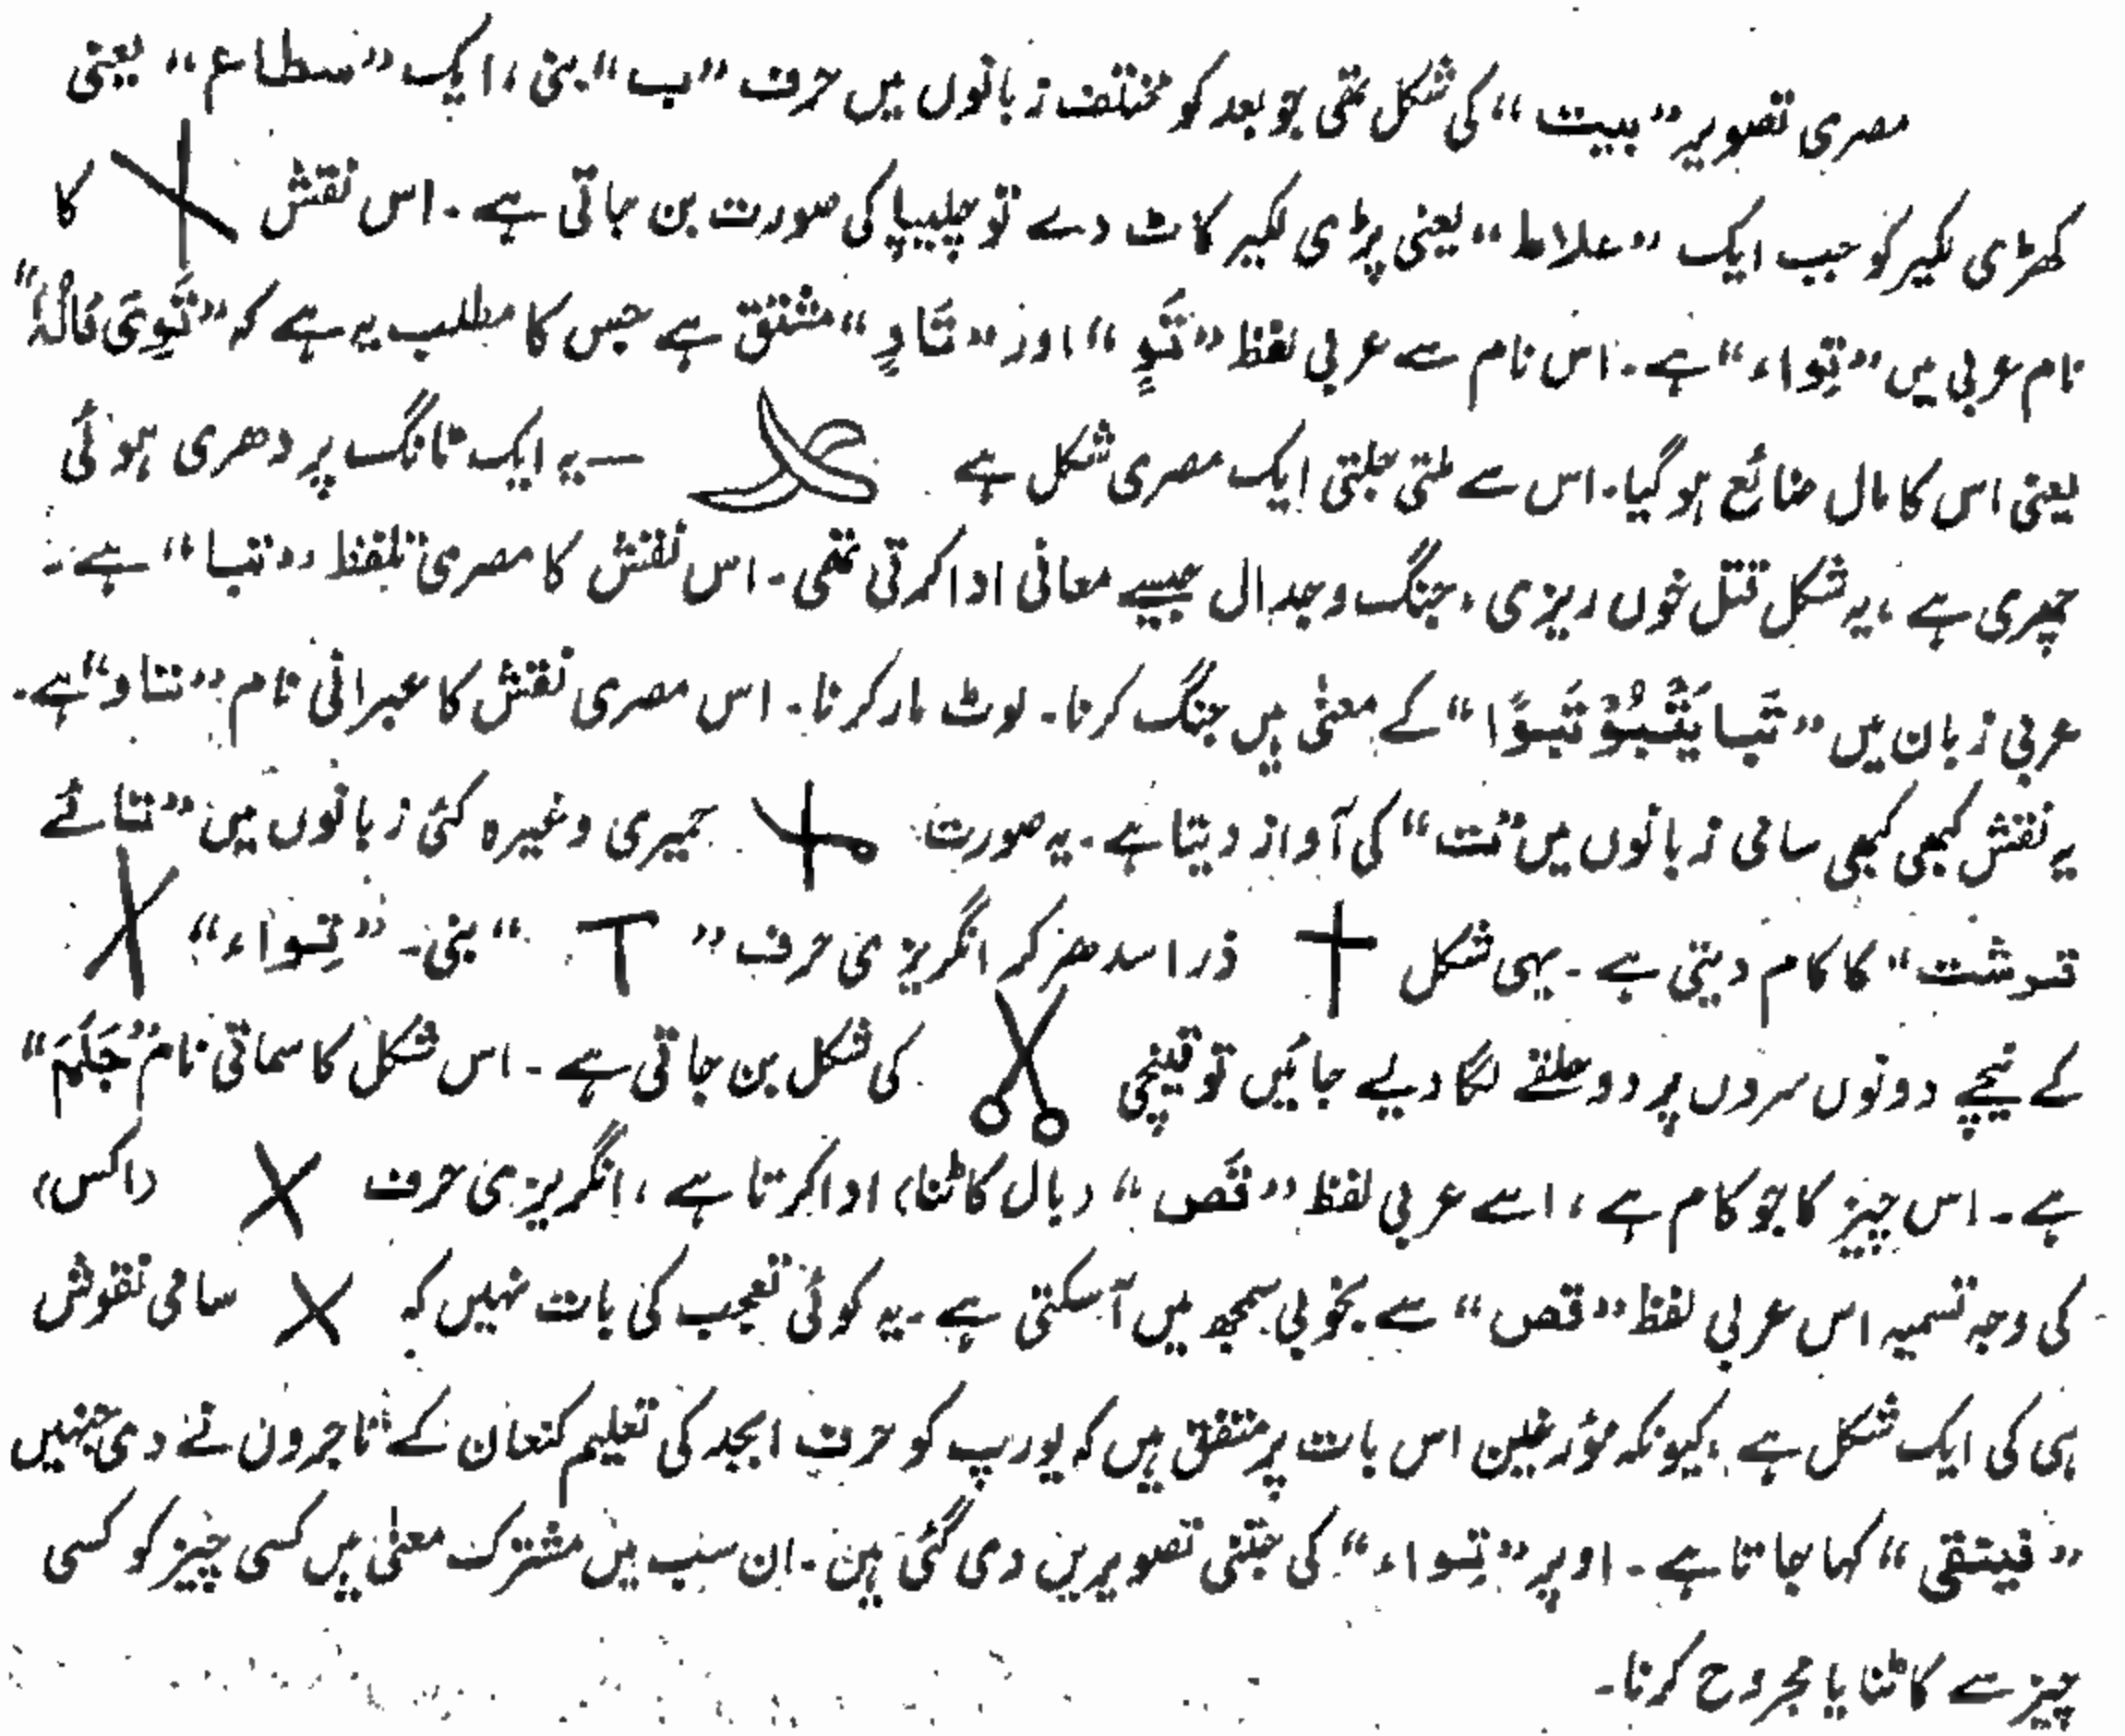 مصری تصویر ”بیت“ کی شکل تھی جو بعد کو مختلف زبانوں میں حرف ”ب“ بنی، ایک ”سطاع“ یعنی
کھڑی لکیر کو جب ایک ”علاط“ یعنی پڑی لکیر کاٹ دے تو چلیپا کی صورت بن جاتی ہے۔ اس نقش کا
نام عربی میں ”تِواء“ ہے۔ اس نام سے عربی لفظ ”تَوٍ“ اور ”تَاوٍ“ مشتق ہے جس کا مطلب یہ ہے کہ ”تَوِیَ مَالُہٗ“
یعنی اس کا مال ضائع ہو گیا۔ اس سے ملتی جلتی ایک مصری شکل ہے — یہ ایک ٹانگ پر دھری ہوئی
چھری ہے، یہ شکل قتل خوں ریزی، جنگ و جدال جیسے معانی ادا کرتی تھی۔ اس نقش کا مصری تلفظ ”تبا“ ہے۔
عربی زبان میں ”تَبا یَتْبُوْ تَبوًا“ کے معنیٰ ہیں جنگ کرنا۔ لوٹ مار کرنا۔ اس مصری نقش کا عبرانی نام ”تاو“ ہے۔
یہ نقش کبھی کبھی سامی زبانوں میں ”ت“ کی آواز دیتا ہے۔ یہ صورت حمیری وغیرہ کئی زبانوں میں ”تائے
قرشت“ کا کام دیتی ہے۔ یہی شکل ذرا سدھر کر انگریزی حرف ”T“ بنی۔ ”تِواء“ X
کے نیچے دونوں سروں پر دو حلقے لگا دیے جائیں تو قینچی کی شکل بن جاتی ہے۔ اس شکل کا سماتی نام ”جَلَمَ“
ہے۔ اس چیز کا جو کام ہے، اسے عربی لفظ ”قَص“ (بال کاٹنا) ادا کرتا ہے، انگریزی حرف X (اکس)
کی وجہ تسمیہ اس عربی لفظ ”قص“ سے بخوبی سمجھ میں آ سکتی ہے۔ یہ کوئی تعجب کی بات نہیں کہ X سامی نقوش
ہی کی ایک شکل ہے، کیونکہ مؤرخین اس بات پر متفق ہیں کہ یورپ کو حرف ابجد کی تعلیم کنعان کے تاجروں نے دی جنہیں
”فینقی“ کہا جاتا ہے۔ اوپر ”تِواء“ کی جتنی تصویریں دی گئی ہیں۔ ان سب میں مشترک معنیٰ ہیں کسی چیز کو کسی
چیز سے کاٹنا یا مجروح کرنا۔